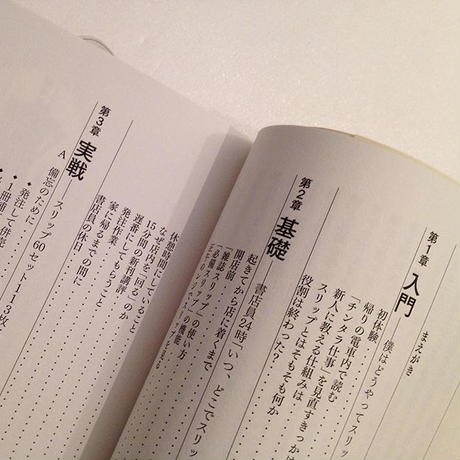 まえがき
第1章 入門
僕はどうやってスリッ
初体験
帰りの電車内で読む
「チンタラ仕事」を見直すきっかけ
新人に教える仕組みは
スリップとはそもそも何か
役割は終わった?
第2章 基礎
書店員24時「いつ、どこでスリッ
起きてから店に着くまで
開店前
「雑誌スリップ」の使い方
「必備スリップ」の機能
休憩時間に
なぜ店内を一回りしていると
15分間の「新刊講読」
遅番にしてもらうこと
発注作業
家に帰るまでの間に
書店員の休日
第3章 実戦
A スリップ60セット113枚
備忘のために
・発注して
・1冊補
・併売